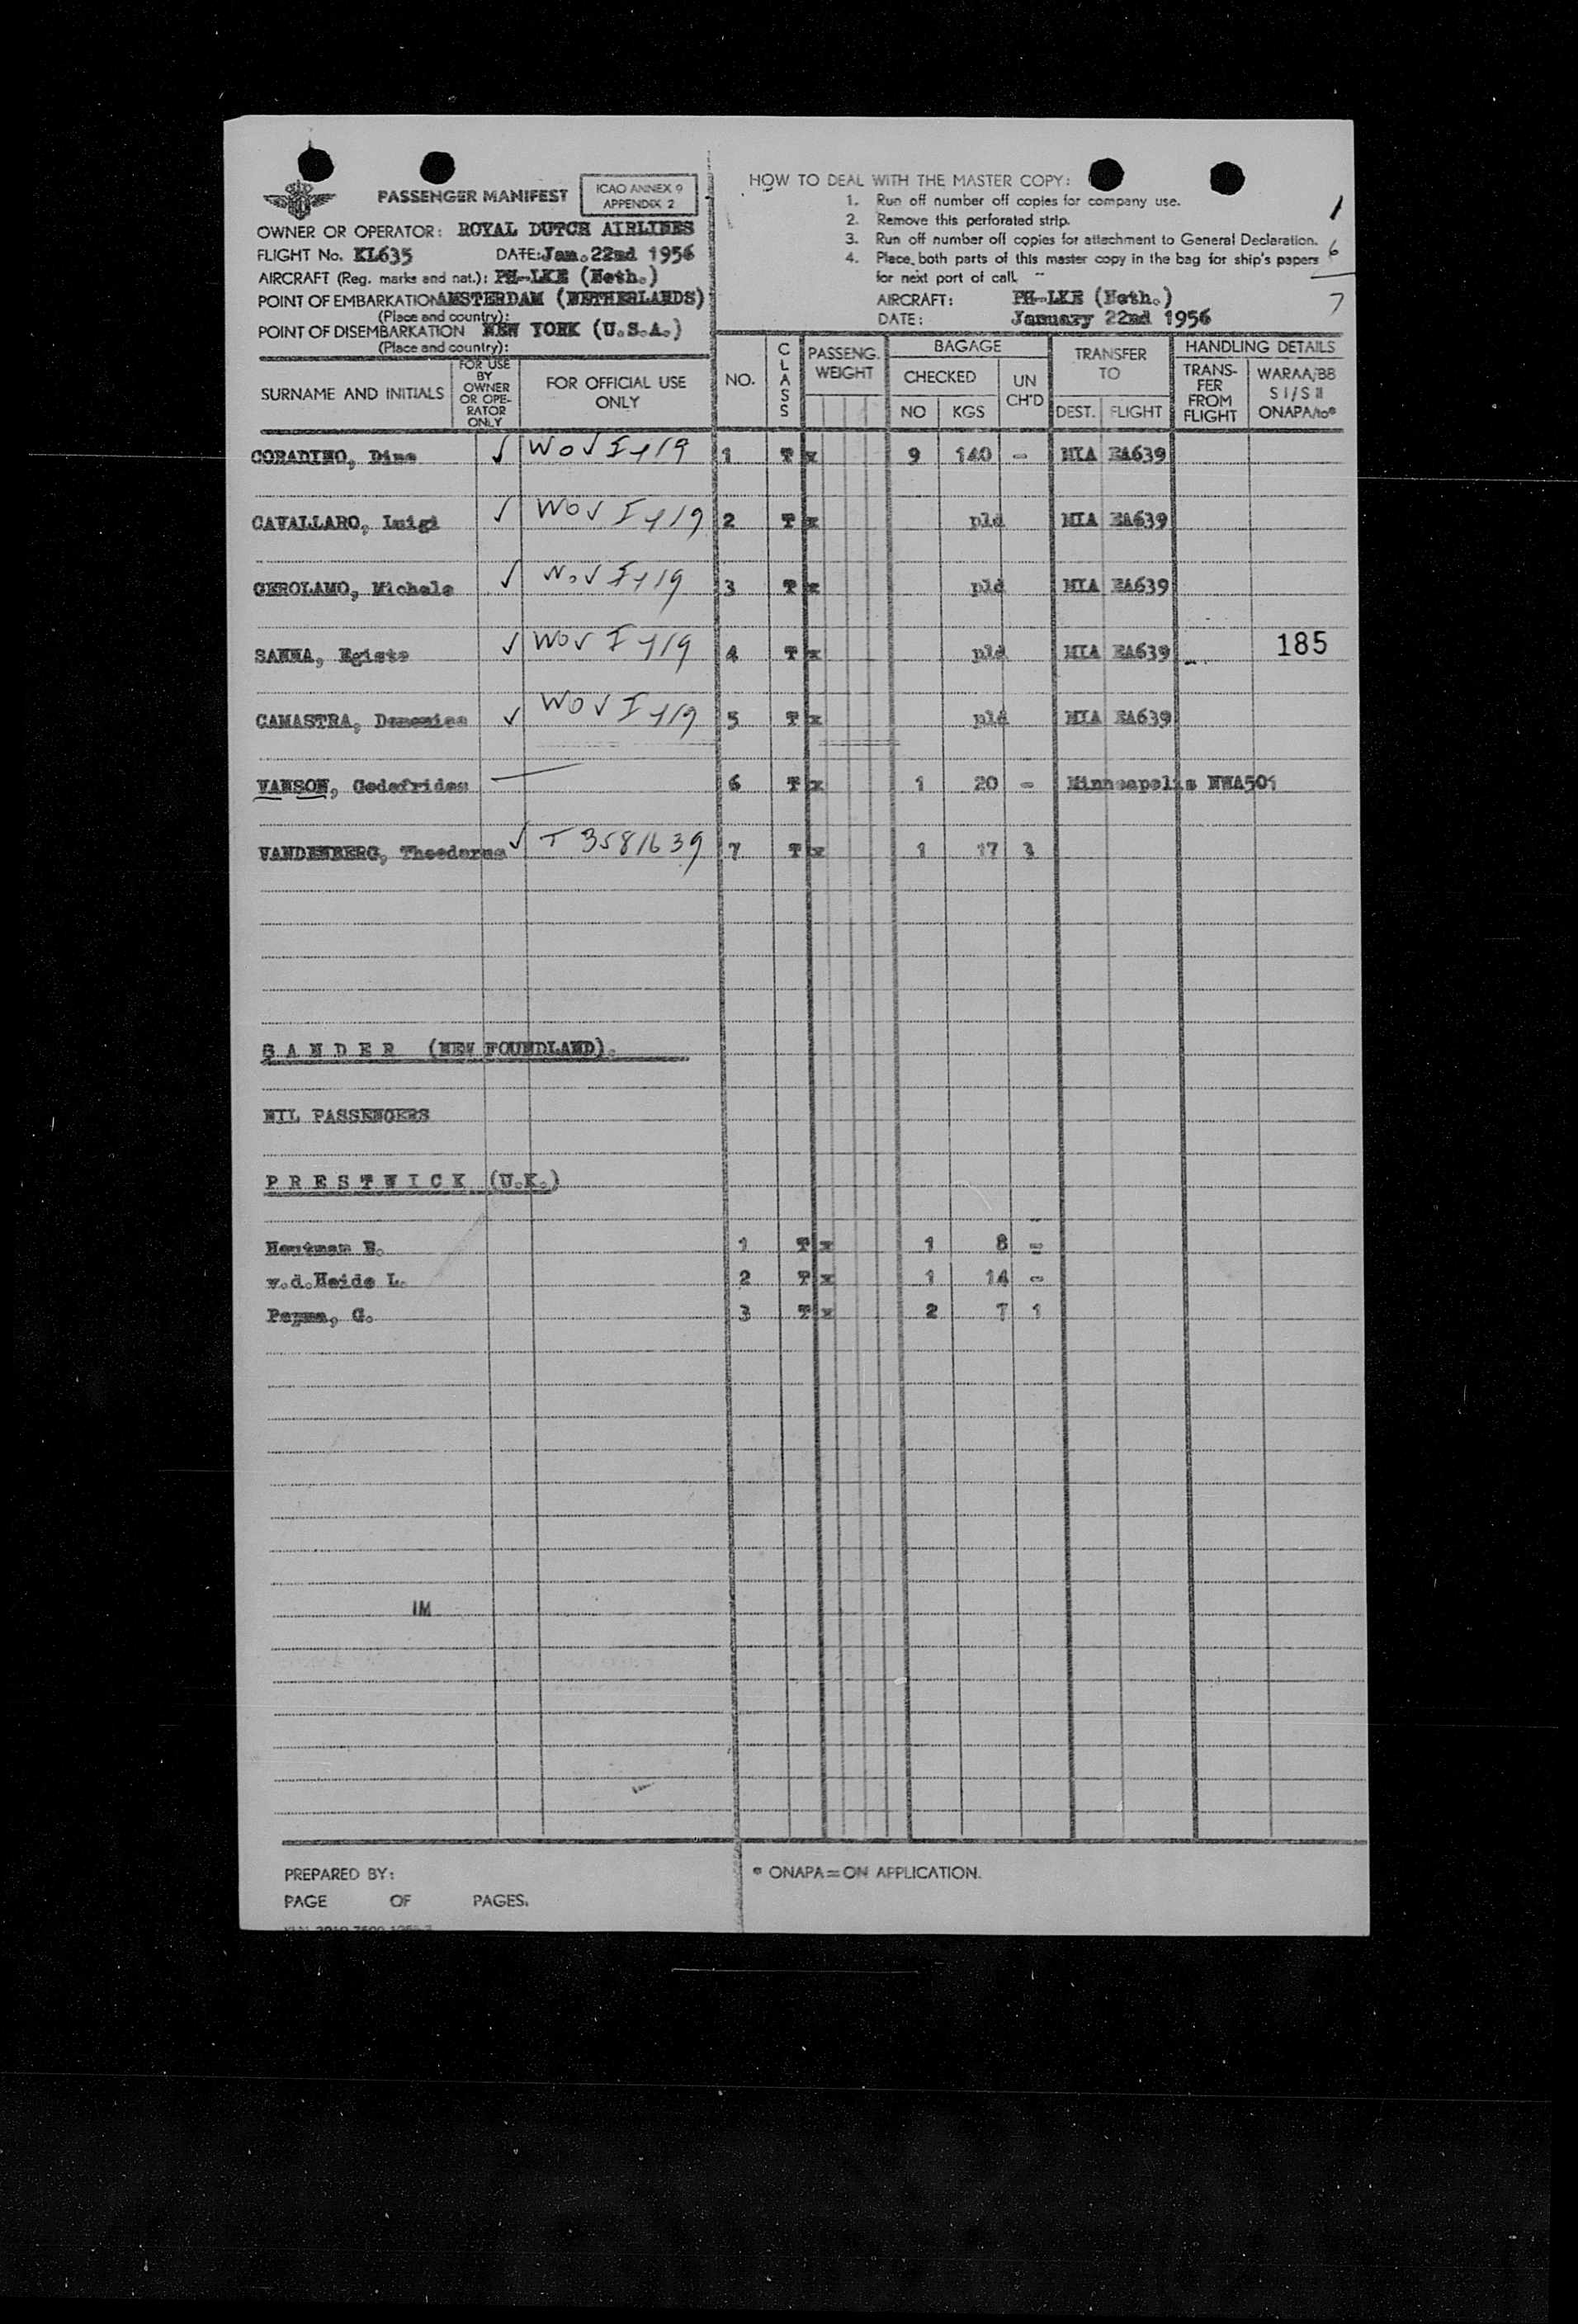 PASSENGER MANIFEST
ICAO ANNEX 9
APPENDIX 2
OWNER OR OPERATOR: ROYAL DUTCH AIRLINES
FLIGHT No. KL635 DATE: Jan. 22nd 1956
AIRCRAFT (Reg. marks and nat.): PH-LKE (Neth.)
POINT OF EMBARKATION AMSTERDAM (NETHERLANDS)
(Place and country):
POINT OF DISEMBARKATION NEW YORK (U.S.A.)
(Place and country):
HOW TO DEAL WITH THE MASTER COPY:
1. Run off number off copies for company use.
2. Remove this perforated strip.
3. Run off number off copies for attachment to General Declaration.
4. Place both parts of this master copy in the bag for ship's papers
for next port of call.
1
6
7
AIRCRAFT: PH-LKE (Neth.)
DATE: January 22nd 1956
SURNAME AND INITIALS
FOR USE BY OWNER OR OPE-RATOR ONLY
FOR OFFICIAL USE ONLY
NO.
CLASS
PASSENG. WEIGHT
BAGAGE
CHECKED
NO KGS
UN CH'D
TRANSFER TO
DEST. FLIGHT
HANDLING DETAILS
TRANS-FER FROM FLIGHT
WARAA/BB
S I/S II
ONAPA/to*
CORADINO, Dina ✓ WOV I 4/9 1 T x 9 140 - MIA EA639
CAVALLARO, Luigi ✓ WOV I 4/9 2 T x pld MIA EA639
GEROLAMO, Michele ✓ WOV I 4/9 3 T x pld MIA EA639
SANNA, Egisto ✓ WOV I 4/9 4 T x pld MIA EA639 185
CAMASTRA, Domenica ✓ WOV I 4/9 5 T x pld MIA EA639
VANSON, Godefridus 6 T x 1 20 - Minneapolis NWA501
VANDENBERG, Theodorus ✓ T 3581639 7 T x 1 17 3
G A N D E R (NEW FOUNDLAND).
NIL PASSENGERS
P R E S T W I C K (U.K.)
1 T x 1 8 -
v.d.Heide L. 2 T x 1 14 -
G. 3 T x 2 7 1
IM
PREPARED BY:
PAGE OF PAGES.
* ONAPA = ON APPLICATION.